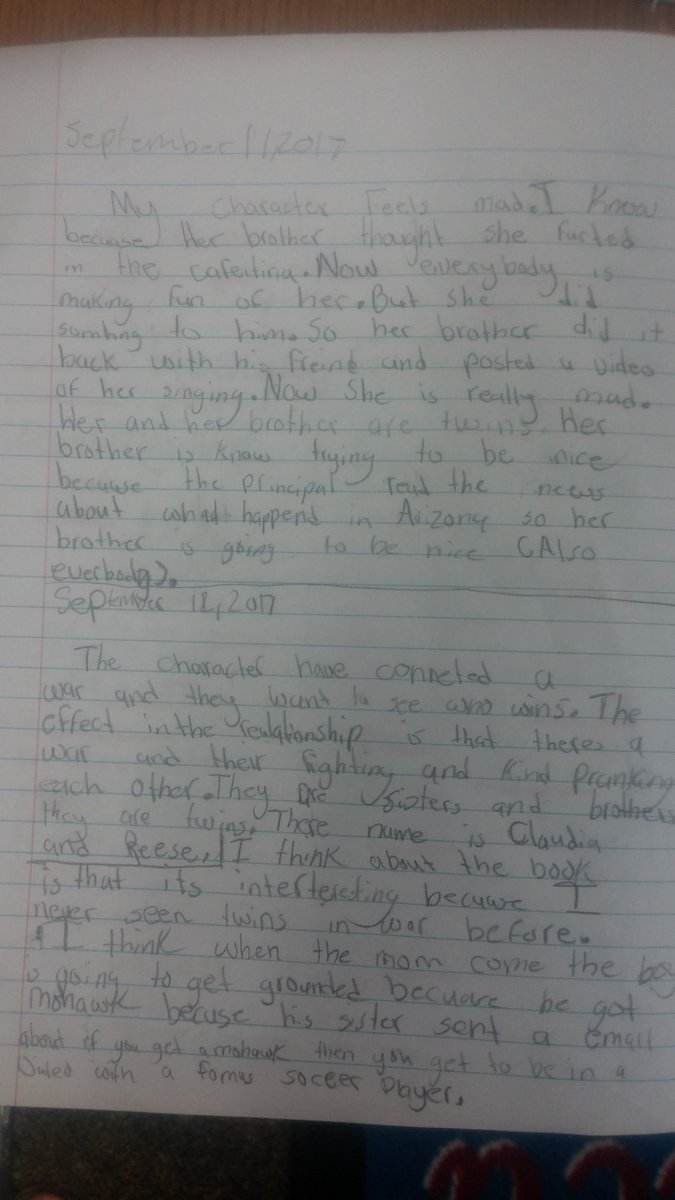 September 11,2017
My Character Feels mad. I Know
becuase Her brother thought she farted
in the cafeitiria. Now everybody is
making fun of her. But she did
somthng to him. So her brother did it
back with his freind and posted a video
of her singing. Now she is really mad.
Her and her brother are twins. Her
brother is know trying to be nice
becuase the principal read the news
about what happend in Arizona so her
brother is going to be nice (Also
everbody).
September 12, 2017
The character have conneted a
war and they want to see who wins. The
effect in the realationship is that theres a
war and their fighting and kind pranking
each other. They are sisters and brothers
they are twins. There name is Claudia
and Reese. I think about the book
is that its intertereting becuase I
never seen twins in war before.
I think when the mom come the boy
is going to get grounded becuare he got
mohawk becuse his sister sent a email
about if you get a mohawk then you get to be in a
with a fomus soccer player.